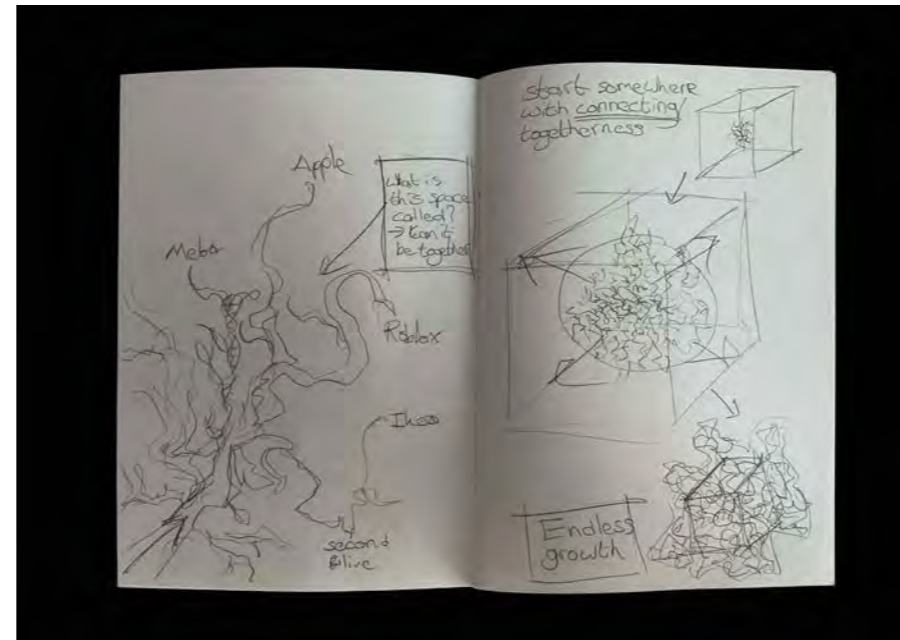 Apple
Meta
What is
this space
called?
→ Can't
be together
Roblox
Ikea
second
start somewhere
with connecting/
togetherness
Endless
growth